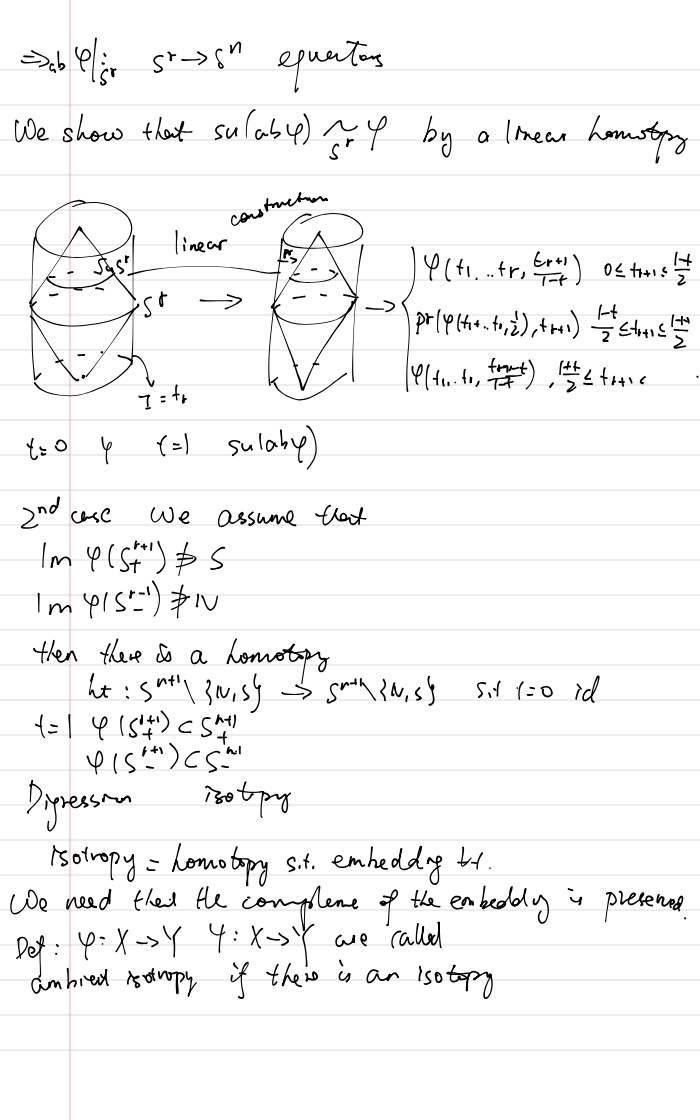 ⇒ ab φ|: S^r  S^r → S^n equators
We show that su(ab φ) ~_{S^r} φ by a linear homotpy
construction
linear
S^r
S^r
→
→
φ(t_1 .. t_r, \frac{t_{r+1}}{1-t})  0 ≤ t_{r+1} ≤ \frac{1-t}{2}
pr(φ(t_1 .. t_r, \frac{1}{2}), t_{r+1})  \frac{1-t}{2} ≤ t_{r+1} ≤ \frac{1+t}{2}
φ(t_1 .. t_r, \frac{t_{r+1}-t}{1-t}), \frac{1+t}{2} ≤ t_{r+1} <
I = t_r
t=0 φ t=1 su(ab φ)
2nd case We assume that
Im φ(S_+^{r+1}) ∌ S
Im φ(S_-^{r-1}) ∌ N
then there is a homotopy
ht : S^{n+1} \ {N,S} → S^{n+1} \ {N,S} s.t t=0 id
t=1 φ(S_+^{r+1}) ⊂ S_+^{n+1}
φ(S_-^{r+1}) ⊂ S_-^{n+1}
Digression isotpy
isotropy = homotopy s.t. embeddng ∀t.
We need that the complene of the embeddy is preserved.
Def: φ: X → Y ψ: X → Y are called
ambient isotropy if there is an isotopy